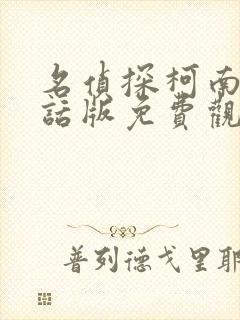 名偵探柯南
話版免費觀
普列德戈里耶